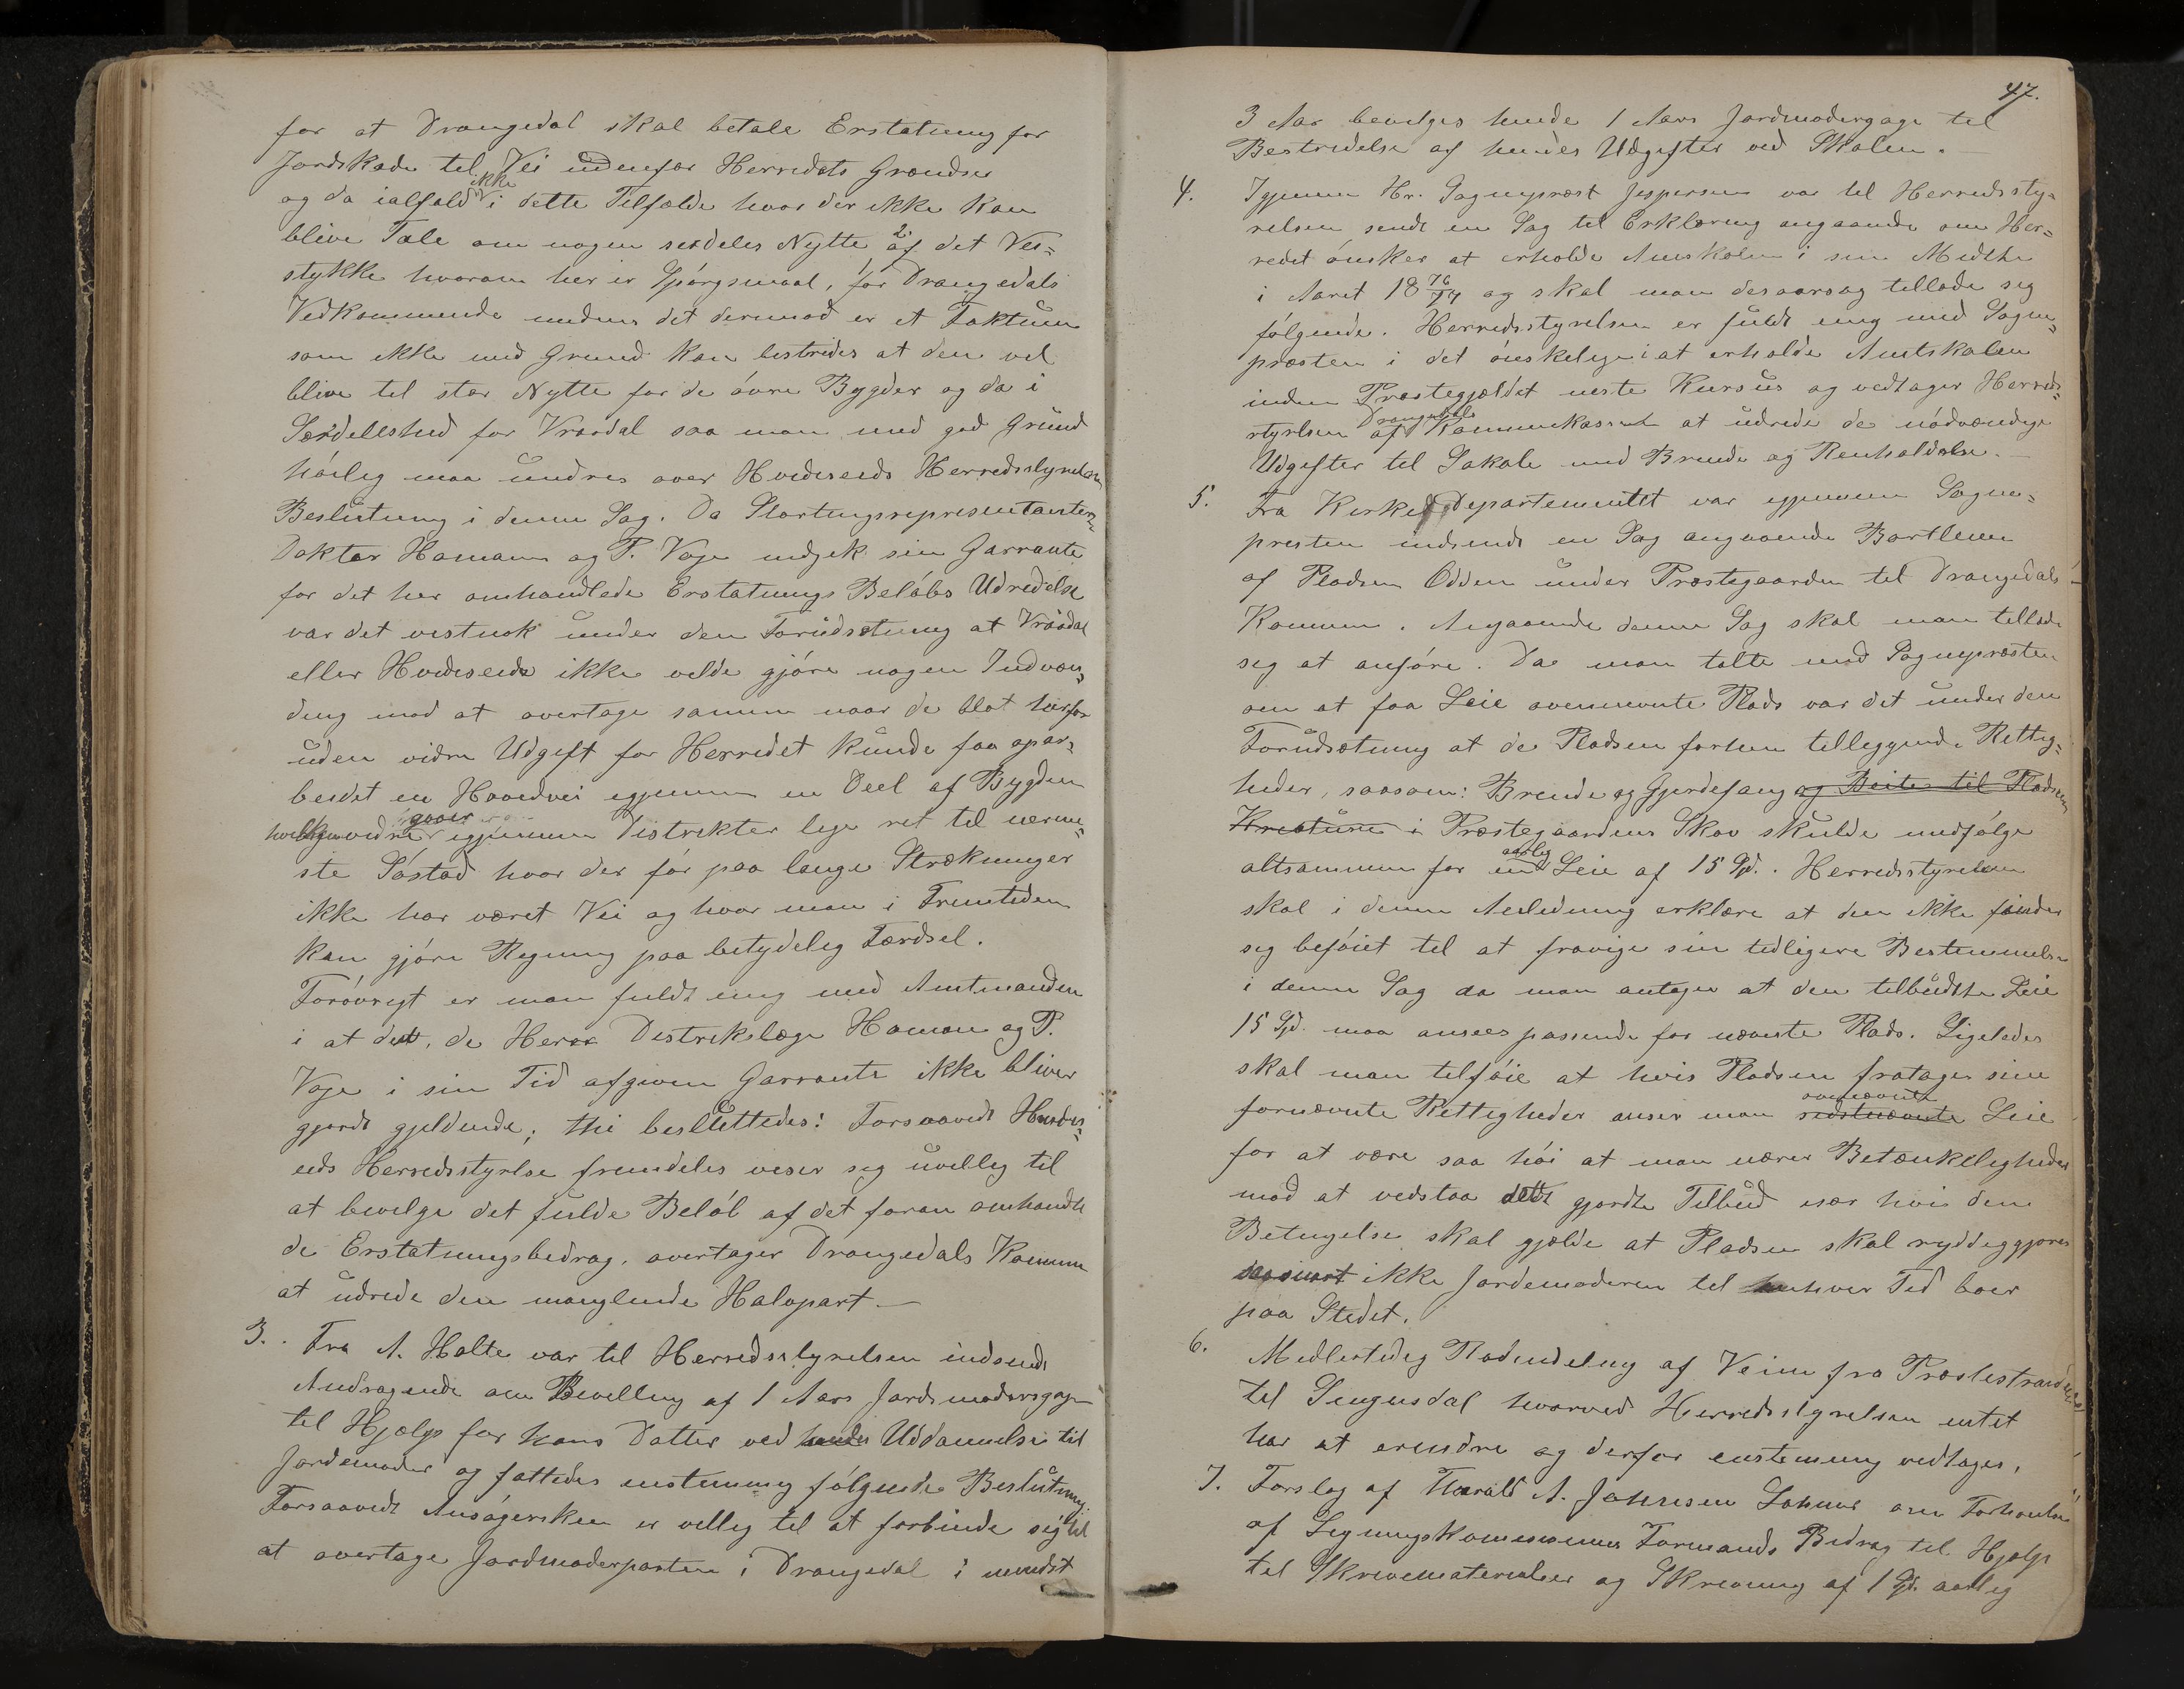 for at Drangedal skal betale Erstatning for
Jordskade til Vei udenfor Herredets Grændser
og da ialfald ikke i dette Tilfælde hvor der ikke kan
blive Tale om nogen serdeles Nytte af det Vei=
stykke hvorom her er Spórgsmaal, for Drangedals
Vedkommende medens det derimod er et Faktum
som ikke med Grund kan bestrides at den vil
blive til stor Nytte for de óvre Bygder og da i
Særdelleshed for Vraadal saa man med god Grund
hóilig maa undres over Hvideseids Herredsstyrelses
Beslutning i denne Sag. Da Stortingsrepresentanterne
Doktor Homann og P. Voje indgik sin Garrante
for det her omhandlede Erstatnings Belóbs Udredelse
var det vistnok under den Forudsetning at Vraadal
eller Hvideseid ikke vilde gjóre nogen Indven=
ding mod at overtage samme naar de blot herfor
uden vidre Udgift for Herredet kunde faa opar=
beidet en Hovedvei igjennem en Deel af Bygden
hvilken vidre gaaer igjennem Distrikter lige ret til nerme=
ste Sóstad hvor der fór paa lange Strækninger
ikke har været Vei og hvor man i Fremtiden
kan gjóre Regning paa betydelig Færdsel.
Foróvrigt er man fuldt enig med Amtmanden
i at den, de Herrer Distrikslæge Homan og P.
Voje i sin Tid afgiven Garrante ikke bliver
gjordt gjeldende; thi besluttedes: Forsaavidt Hvides=
eids Herredsstyrelse fremdeles viser sig uvillig til
at bevilge det fulde Belób af det foran omhandle
de Erstatningsbedrag, overtager Drangedals Komune
at udrede den manglende Halvpart. —
3. Fra A. Holte var til Herredsstyrelsen indsendt
Andragende om Bevilling af 1 Aars Jordmodersgage
til Hjælp for hans Datter ved hendes Uddannelse til
Jordemoder og fattedes enstemmig fólgende Beslutning:
Forsaavidt Ansógersken er villig til at forbinde sig til
at overtage Jordmoderposten i Drangedal i mindst
47.
3 Aar bevilges hende 1 Aars Jordmodergage til
Bestridelse af hendes Udgifter ved Skolen. —
4. Igjennem Hr. Sogneprest Jespersen var til Herredssty=
relsen sendt en Sag til Erklæring angaaende om Her=
redet ónsker at erholde Amtskolen i sin Midte
i Aaret 18 76/77 og skal man desaarsag tillade sig
fólgende. Herredsstyrelsen er fuldt enig med Sogne=
præsten i det ónskelige i at erholde Amtskolen
inden Præstegjældet neste Kursus og vedtager Herreds=
styrelsen af Drangedals Kommukasse at udrede de nódvændige
Udgifter til Lokale med Brende og Renholdelse. —
5. Fra Kirkedepartementet var igjennem Sogne=
presten indsendt en Sag angaaende Bortleien
af Pladsen Odden under Præstegaarden til Drangedals
Komune. Angaaende denne Sag skal man tillade
sig at anfóre. Da man talte med Sognepræsten
om at faa Leie ovennevnte Plads var det under den
Forudsætning at de Pladsen forhen tilleggende Rettig=
heder, saasom: Brende og Gjerdefang og Beite til Pladsens
Kreature i Præstegaardens Skov skulde medfólge
altsammen for en aarlig Leie af 15 Spd. Herredsstyrelsen
skal i denne Anledning erklære at den ikke finder
sig befóiet til at fravige sin tidligere Bestemmelse
i denne Sag da man antager at den tilbudte Leie
15 Spd. maa ansees passende for nævnte Plads. Ligeledes
skal man tilfóie at hvis Pladsen fratages sine
fornævnte Rettigheder anser man ovennævnte sidstnævnte Leie
for at være saa hói at man nærer Betænkeligheder
mod at vedstaa dette gjordte Tilbud især hvis den
Betingelse skal gjælde at Pladsen skal ryddiggjores
saasnart ikke Jordemoderen til enhver Tid boer
paa Stedet.
6. Midlertidig Rodendeling af Veien fra Præstestranden
til Sengusdal hvorved Herredsstyrelsen intet
har at erindre og derfor enstemmig vedtages.
7. Forslag af Tharald A. Johnsen om Forhøielse
af Ligningskomissionens Formands Bidrag til Hjælp
til Skrivematerialier og Skrivning af 1 Spd. aarlig